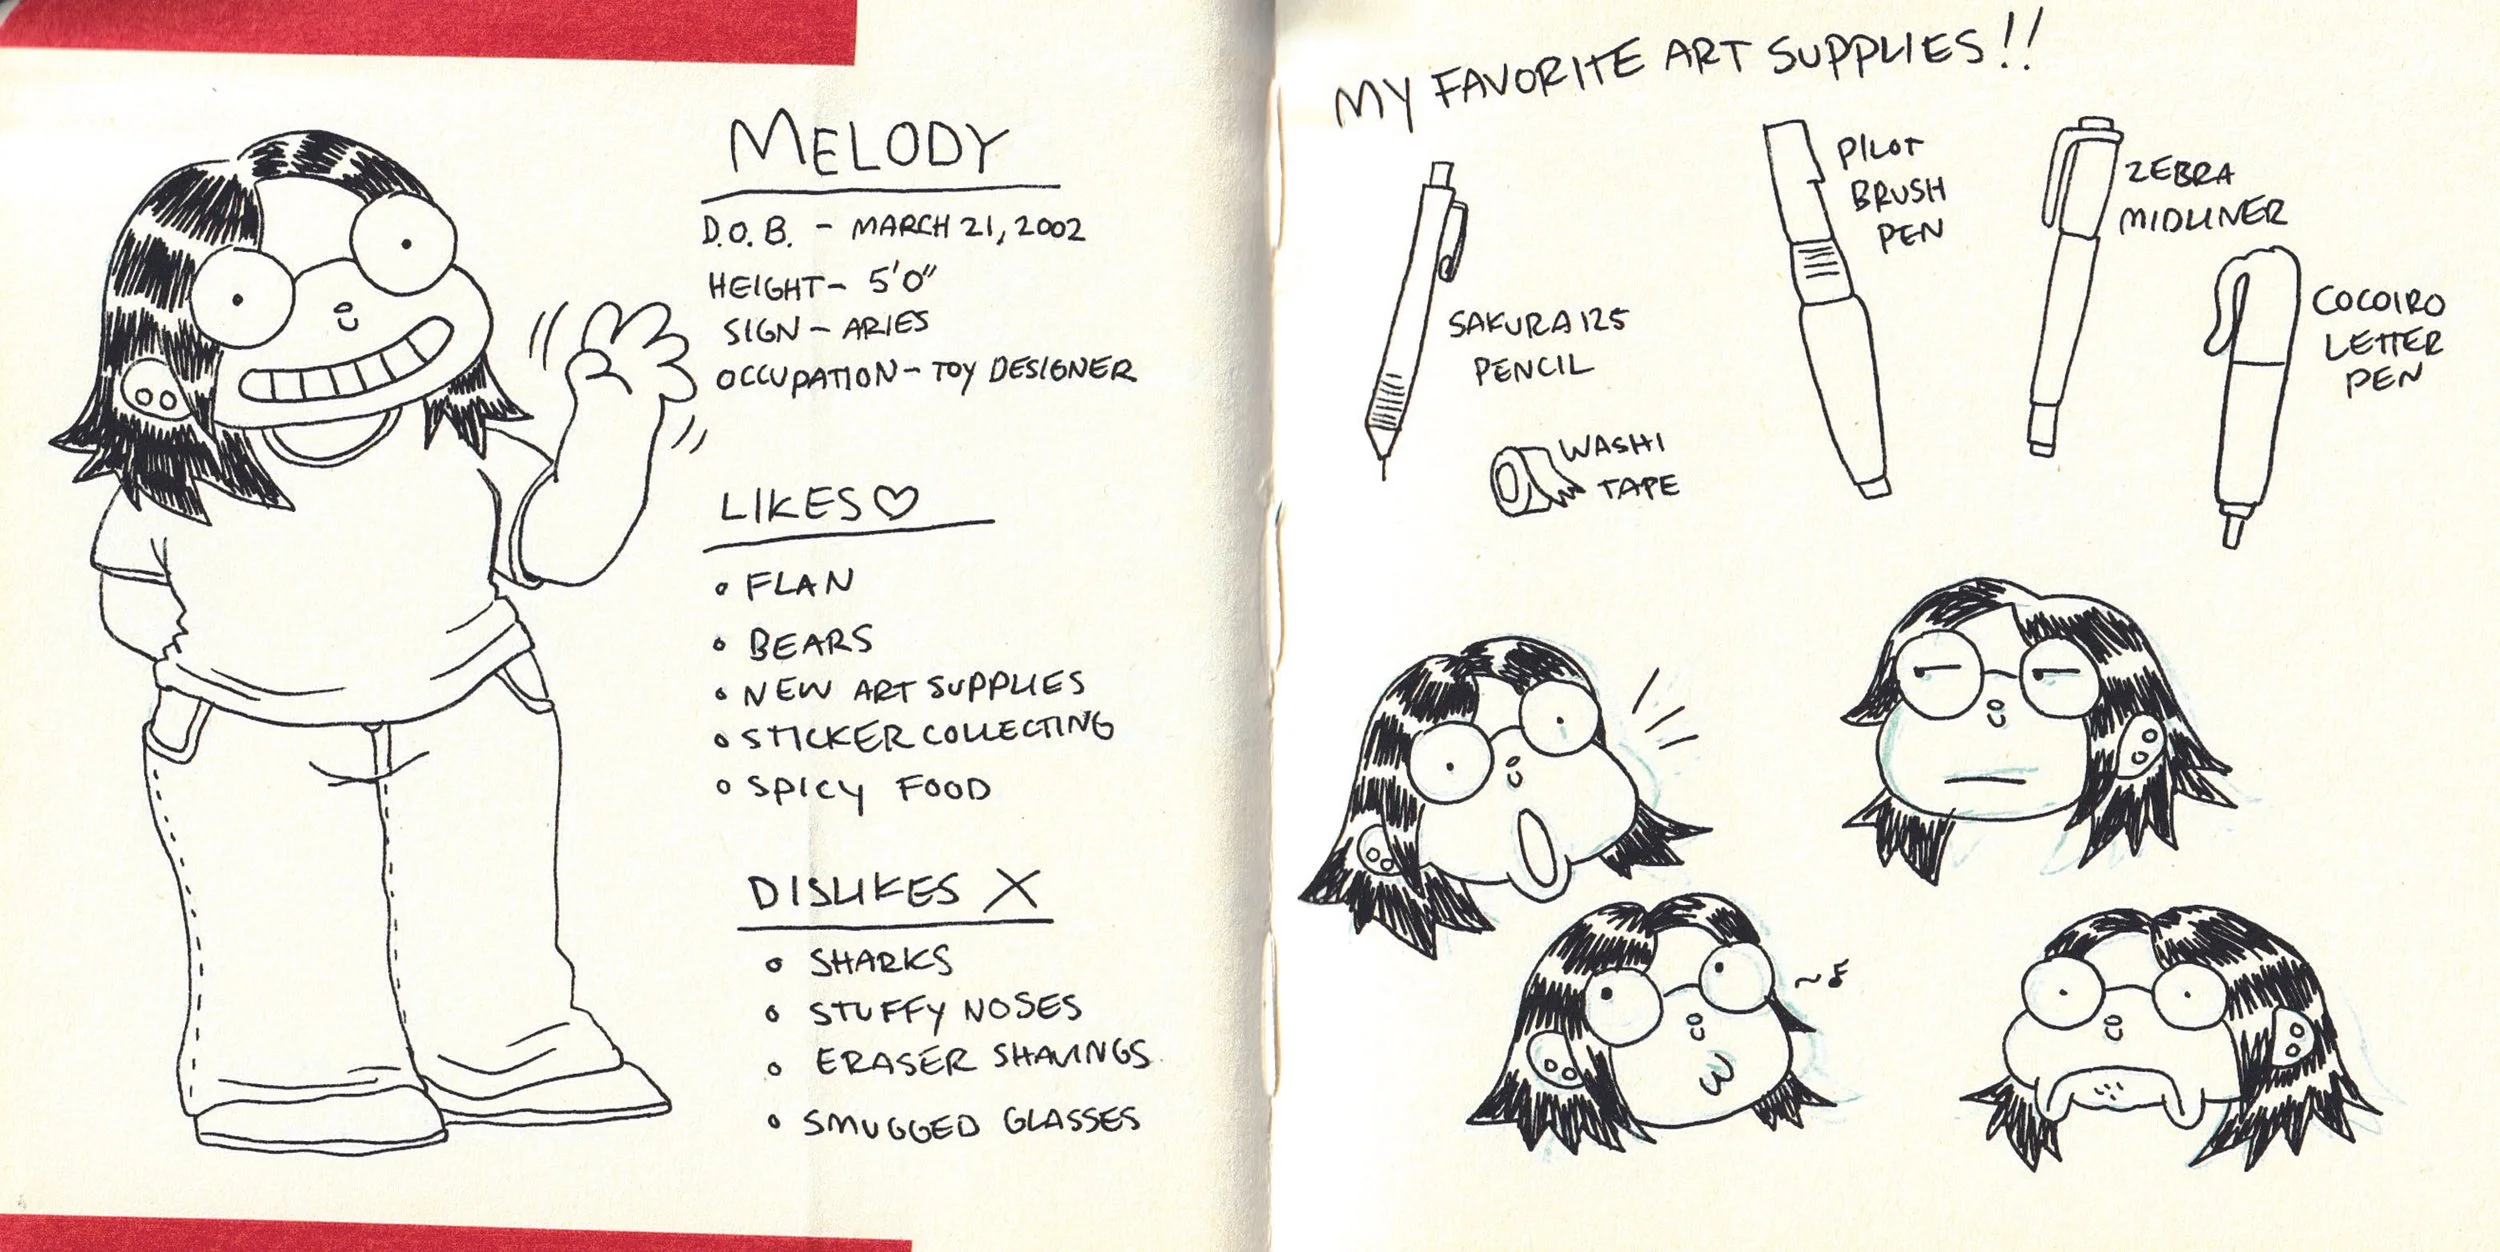 MELODY
D.O.B. - MARCH 21, 2002
HEIGHT - 5'0"
SIGN - ARIES
OCCUPATION - TOY DESIGNER
LIKES ♡
• FLAN
• BEARS
• NEW ART SUPPLIES
• STICKER COLLECTING
• SPICY FOOD
DISLIKES X
• SHARKS
• STUFFY NOSES
• ERASER SHAVINGS
• SMUGGED GLASSES
MY FAVORITE ART SUPPLIES!!
SAKURA 125
PENCIL
WASHI
TAPE
PILOT
BRUSH
PEN
ZEBRA
MIDLINER
COCOIRO
LETTER
PEN